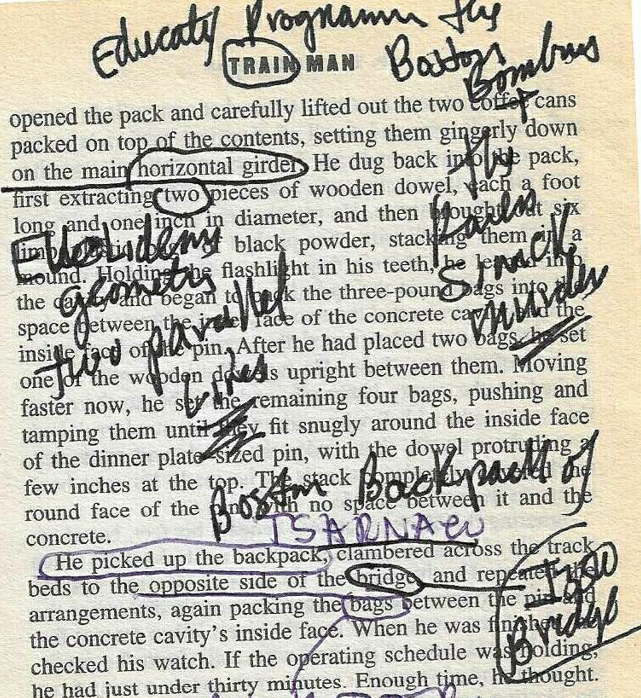 Programm
TRAIN MAN
Boston
opened the pack and carefully lifted out the two coffee cans
packed on top of the contents, setting them gingerly down
on the main horizontal girder. He dug back into the pack,
first extracting two pieces of wooden dowel, each a foot
long and one inch in diameter, and then brought out six
of black powder, stacking them in a
mound. Holding the flashlight in his teeth, he
the and began to the three-pound bags into
space between the face of the concrete and the
inside face of the pin. After he had placed two bags, he set
one of the wooden dowels upright between them. Moving
faster now, he set the remaining four bags, pushing and
tamping them until they fit snugly around the inside face
of the dinner plate-sized pin, with the dowel protruding a
few inches at the top. The stack completely the
round face of the pin with no space between it and the
concrete.
geometry
two parallel
Lines
murder
Boston Backpack of
TSARNAEV
He picked up the backpack, clambered across the track
beds to the opposite side of the bridge and
arrangements, again packing the bags between the pin and
the concrete cavity's inside face. When he was finished
checked his watch. If the operating schedule was holding,
he had just under thirty minutes. Enough time, he thought.
Bridge